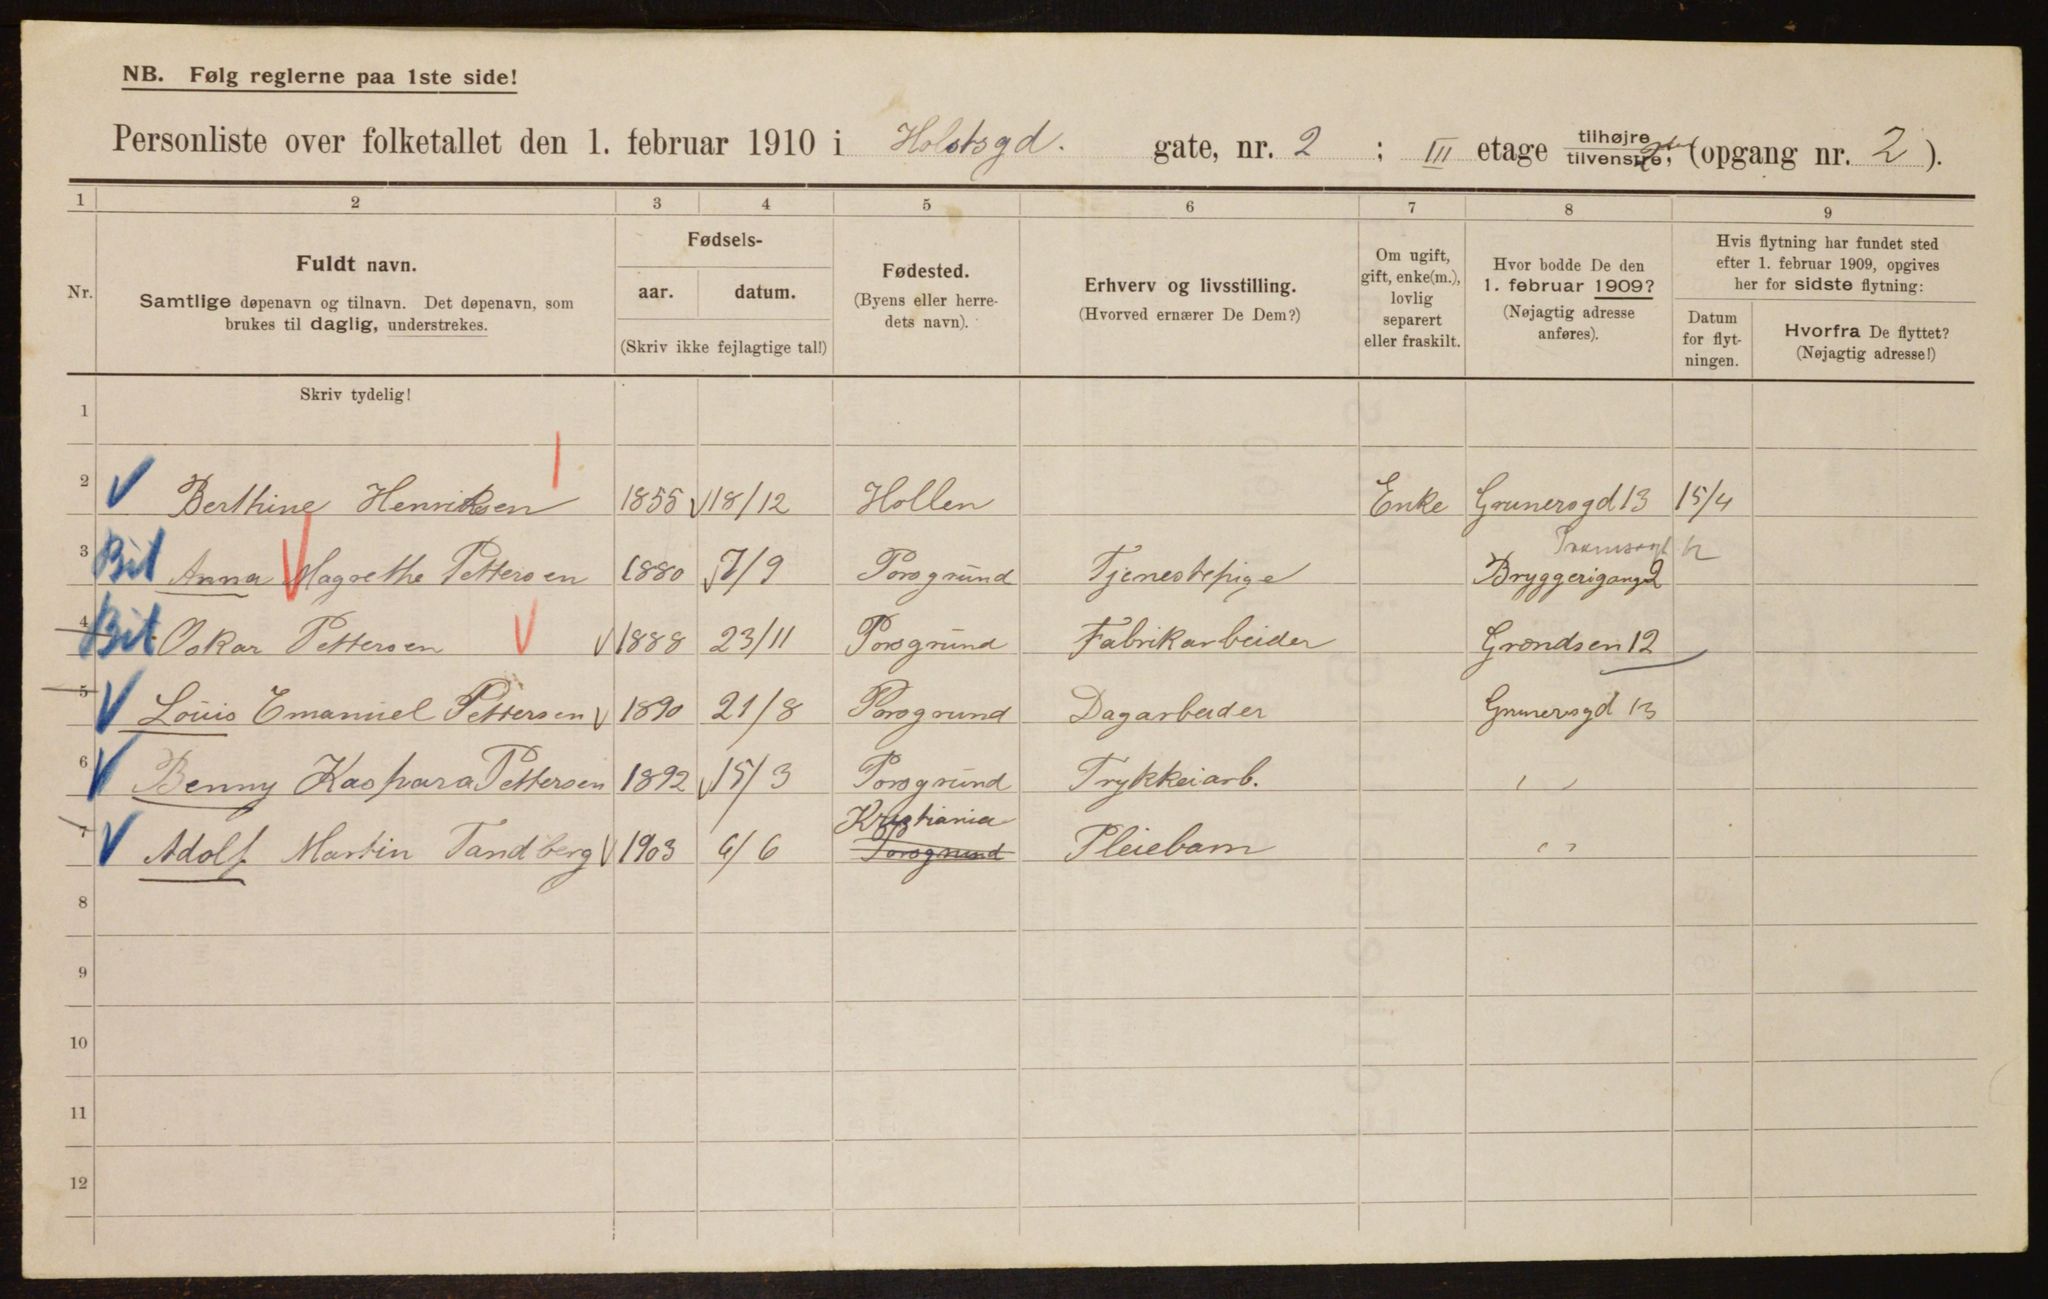 NB. Følg reglerne paa 1ste side!
Personliste over folketallet den 1. februar 1910 i Holstsgd. gate, nr. 2 ; III etage tilhøjre tilvenstre, (opgang nr. 2 ).
1 2 3 4 5 6 7 8 9
Nr.
Fuldt navn.
Samtlige døpenavn og tilnavn. Det døpenavn, som
brukes til daglig, understrekes.
Fødsels-
aar. datum.
(Skriv ikke fejlagtige tal!)
Fødested.
(Byens eller herre-
dets navn).
Erhverv og livsstilling.
(Hvorved ernærer De Dem?)
Om ugift,
gift, enke(m.),
lovlig
separert
eller fraskilt.
Hvor bodde De den
1. februar 1909?
(Nøjagtig adresse
anføres).
Hvis flytning har fundet sted
efter 1. februar 1909, opgives
her for sidste flytning:
Datum
for flyt-
ningen.
Hvorfra De flyttet?
(Nøjagtig adresse!)
Skriv tydelig!
1
2 Berthine Henriksen 1855 18/12 Hollen Enke Grunersgd 13 15/4
3 Bit Anna Magrethe Pettersen 1880 7/9 Porsgrund Tjenestepige Bryggerigang 2
4 Bit Oskar Pettersen 1888 23/11 Porsgrund Fabrikarbeider Grændsen 12
5 Louis Emanuel Pettersen 1890 21/8 Porsgrund Dagarbeider Grunersgd 13
6 Benny Kaspara Pettersen 1892 15/3 Porsgrund Trykkeiarb. " "
Kristiania
7 Adolf Martin Tandberg 1903 6/6 Porsgrund Pleiebarn " "
8
9
10
11
12